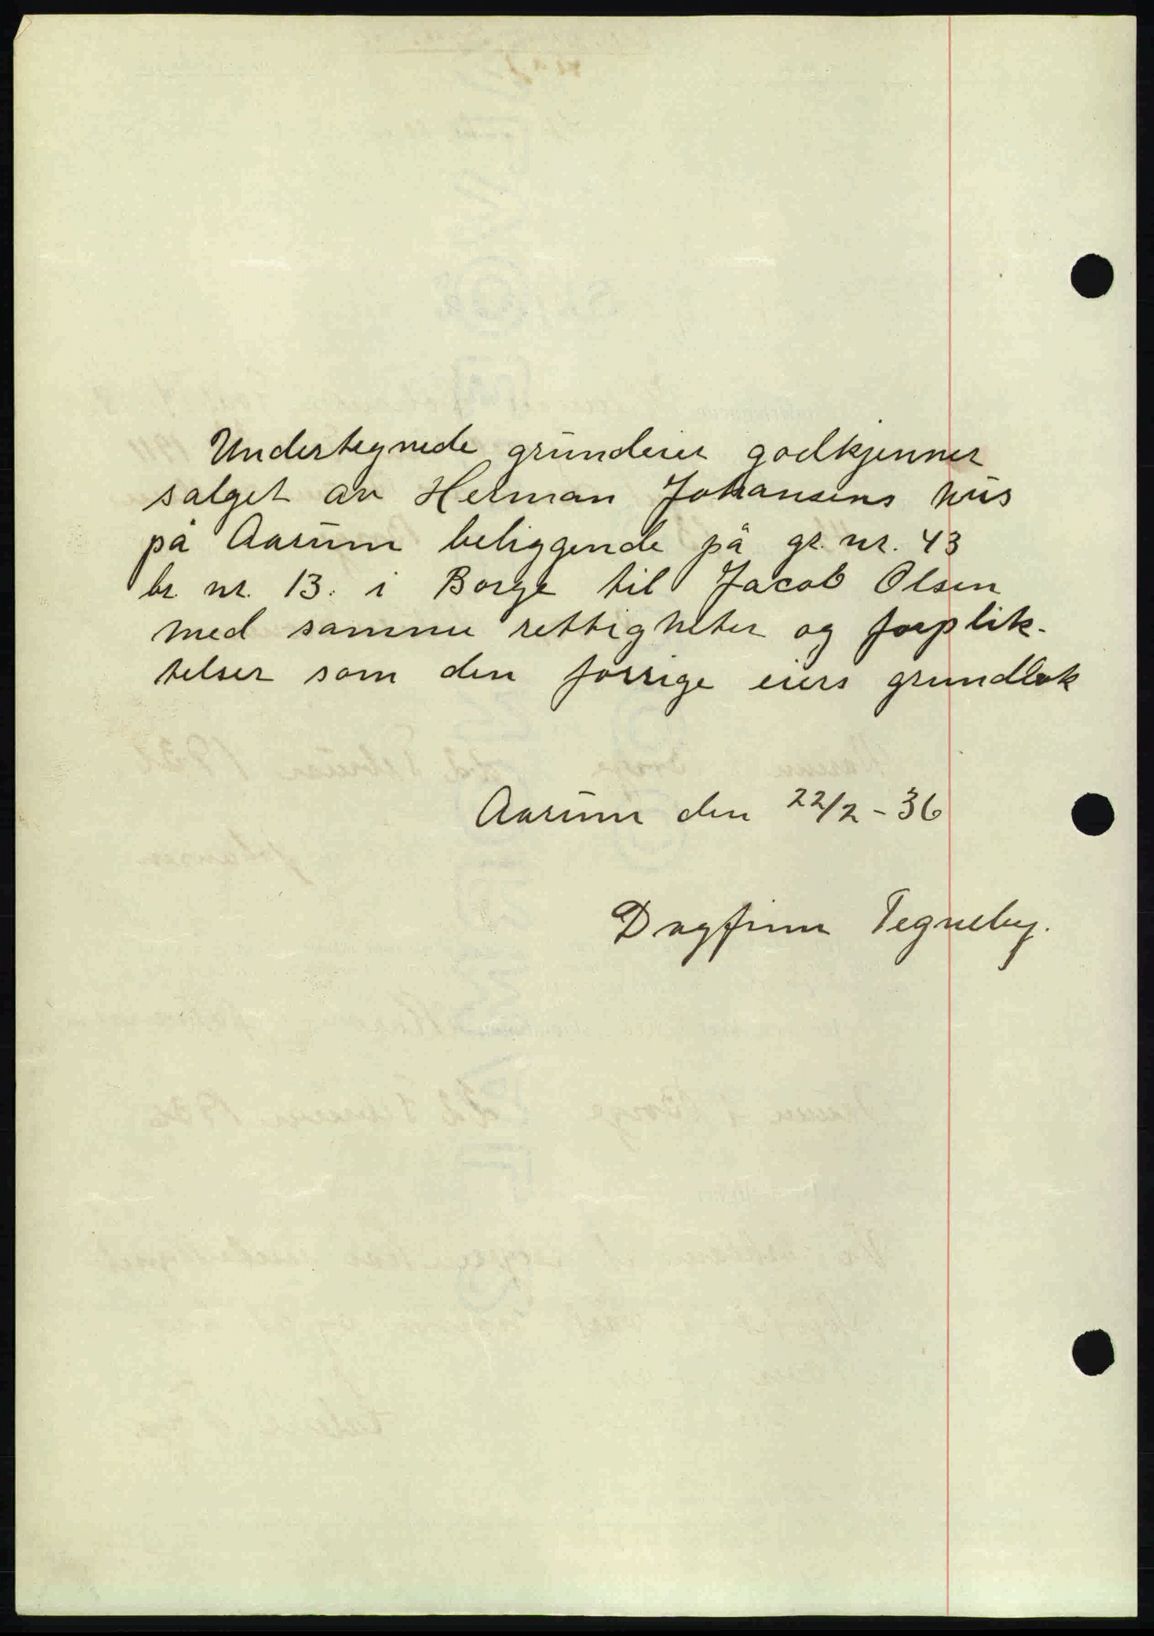 Undertegnede grundeier godkjenner
salget av Herman Johansens hus
på Aarum beliggende på gr. nr. 43
br. nr. 13. i Borge til Jacob Olsen
med samme rettigheter og forplik-
telser som den forrige eiers grundbok
Aarum den 22/2 - 36
Dagfinn Tegneby.